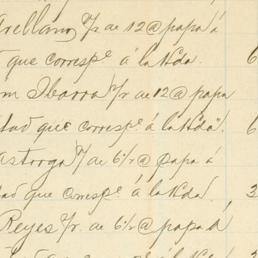 Arellano y/r de 12@ papa á
d que correspe. á la Hda. 6
m Ibarra y/r de 12@ papa
itad que correspe. á la Hda". 6
astorga y/ de 6½@ papa á
dad que correspe. á la Hda. 3
Reyes y/r. de 6½@ papa á